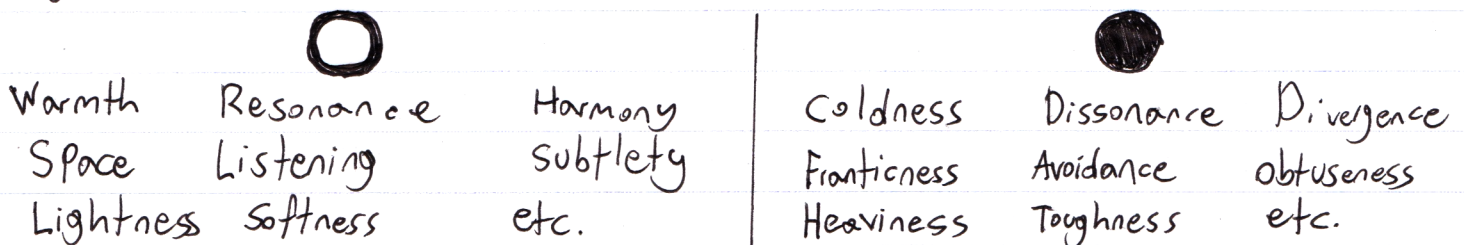 Warmth Resonance Harmony
Space Listening Subtlety
Lightness Softness etc.
Coldness Dissonance Divergence
Franticness Avoidance Obtuseness
Heaviness Toughness etc.